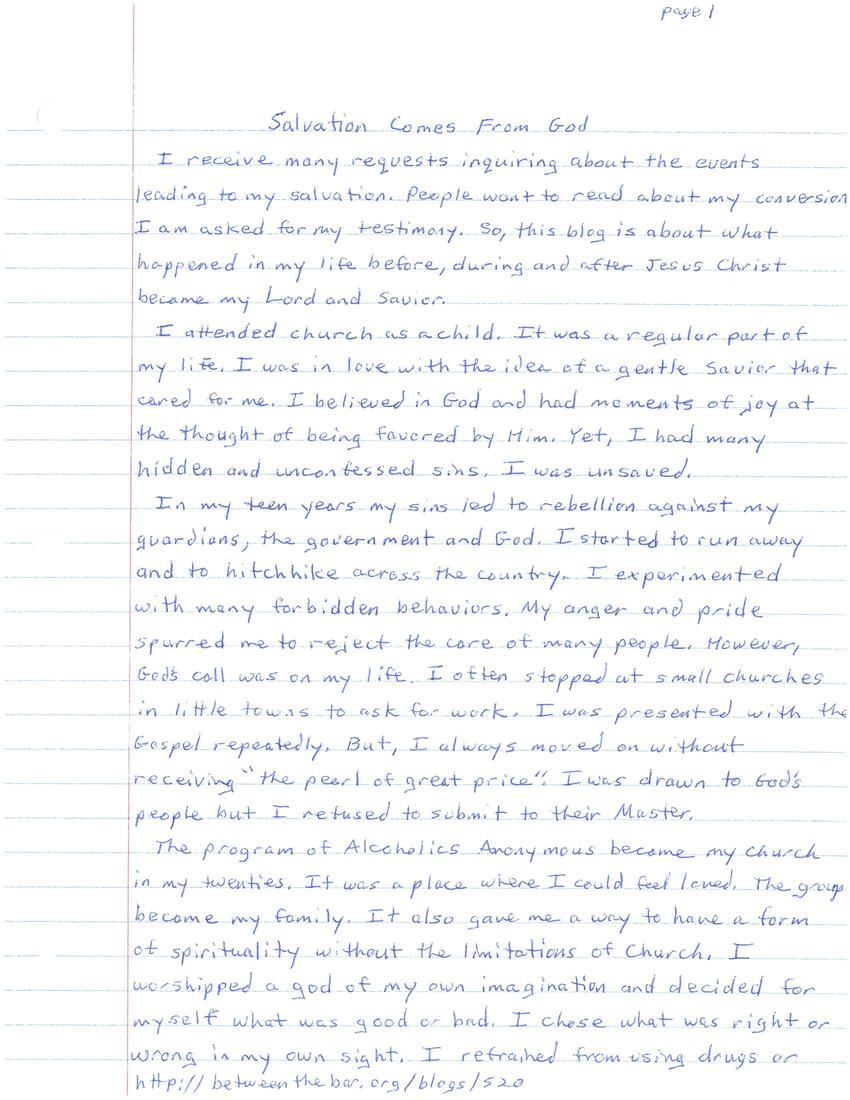 page 1
Salvation Comes From God
I receive many requests inquiring about the events
leading to my salvation. People want to read about my conversion
I am asked for my testimony. So, this blog is about what
happened in my life before, during and after Jesus Christ
became my Lord and Savior.
I attended church as a child. It was a regular part of
my life. I was in love with the idea of a gentle Savior that
cared for me. I believed in God and had moments of joy at
the thought of being favored by Him. Yet, I had many
hidden and unconfessed sins. I was unsaved.
In my teen years my sins led to rebellion against my
guardians, the government and God. I started to run away
and to hitchhike across the country. I experimented
with many forbidden behaviors. My anger and pride
spurred me to reject the care of many people. However,
God's call was on my life. I often stopped at small churches
in little towns to ask for work. I was presented with the
Gospel repeatedly. But, I always moved on without
receiving "the pearl of great price". I was drawn to God's
people but I refused to submit to their Master.
The program of Alcoholics Anonymous became my church
in my twenties. It was a place where I could feel loved. The group
became my family. It also gave me a way to have a form
of spirituality without the limitations of Church. I
worshipped a god of my own imagination and decided for
myself what was good or bad. I chose what was right or
wrong in my own sight. I refrained from using drugs or
http://betweenthebar.org/blogs/520